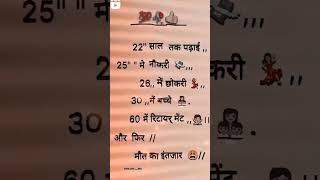 22" साल तक पढ़ाई ,,
25" " मे नौकरी ,,,,
26,, में छोकरी ,,
30 ,,नें बच्चे .
60 में रिटायर् मेंट ,,!!
और फिर //
मौत का इंतजार //